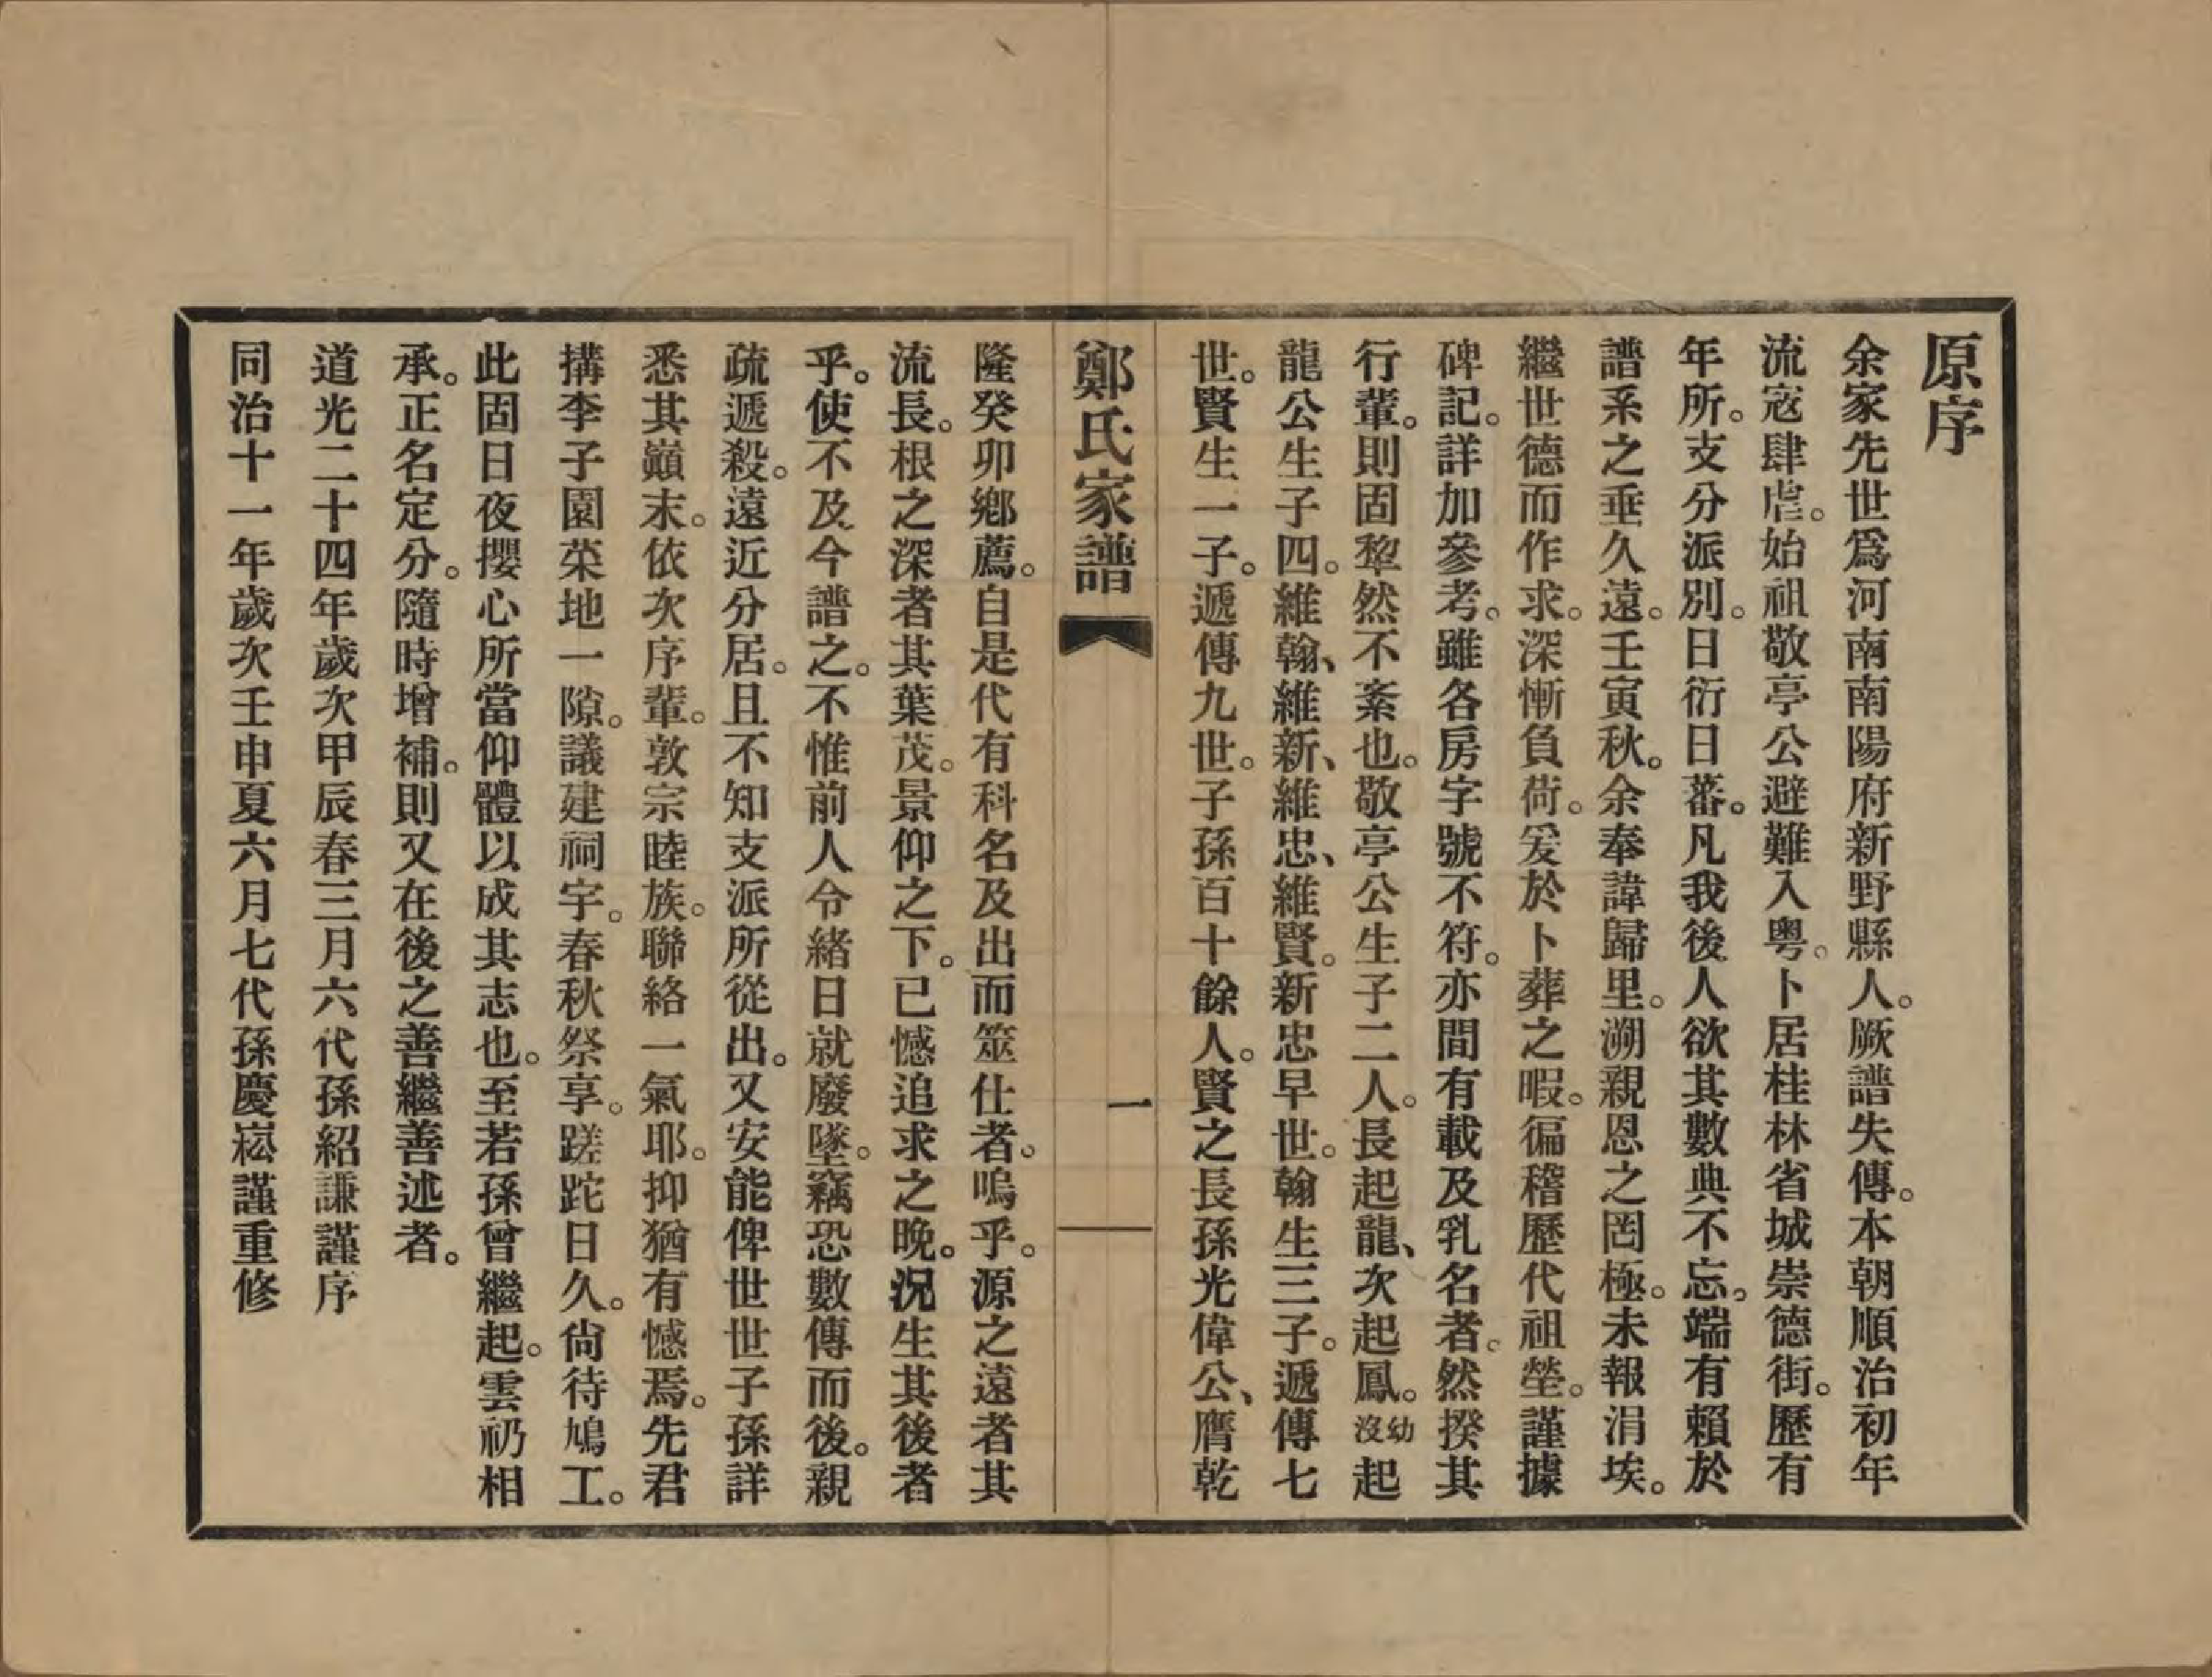 原序
余家先世爲河南南陽府新野縣人。厥譜失傳。本朝順治初年
流寇肆虐。始祖敬亭公避難入粵。卜居桂林省城崇德街。歷有
年所。支分派別。日衍日蕃。凡我後人欲其數典不忘。端有賴於
譜系之垂久遠。壬寅秋。余奉諱歸里。溯親恩之罔極。未報涓埃。
繼世德而作求。深慚負荷。爰於卜葬之暇。徧稽歷代祖塋。謹據
碑記。詳加參考。雖各房字號不符。亦間有載及乳名者。然揆其
行輩。則固犂然不紊也。敬亭公生子二人。長起龍、次起鳳。幼沒起
龍公生子四。維翰、維新、維忠、維賢。新忠早世。翰生三子。遞傳七
世。賢生一子。遞傳九世。子孫百十餘人。賢之長孫光偉公、膺乾
鄭氏家譜
一
隆癸卯鄕薦。自是代有科名及出而筮仕者。嗚乎。源之遠者其
流長。根之深者其葉茂。景仰之下。已憾追求之晚。況生其後者
乎。使不及今譜之。不惟前人令緒日就廢墜。竊恐數傳而後。親
疏遞殺。遠近分居。且不知支派所從出。又安能俾世世子孫詳
悉其巔末。依次序輩。敦宗睦族。聯絡一氣耶。抑猶有憾焉。先君
搆李子園菜地一隙。議建祠宇。春秋祭享。蹉跎日久。尙待鳩工。
此固日夜攖心所當仰體以成其志也。至若孫曾繼起。雲礽相
承。正名定分。隨時增補。則又在後之善繼善述者。
道光二十四年歲次甲辰春三月六代孫紹謙謹序
同治十一年歲次壬申夏六月七代孫慶崧謹重修